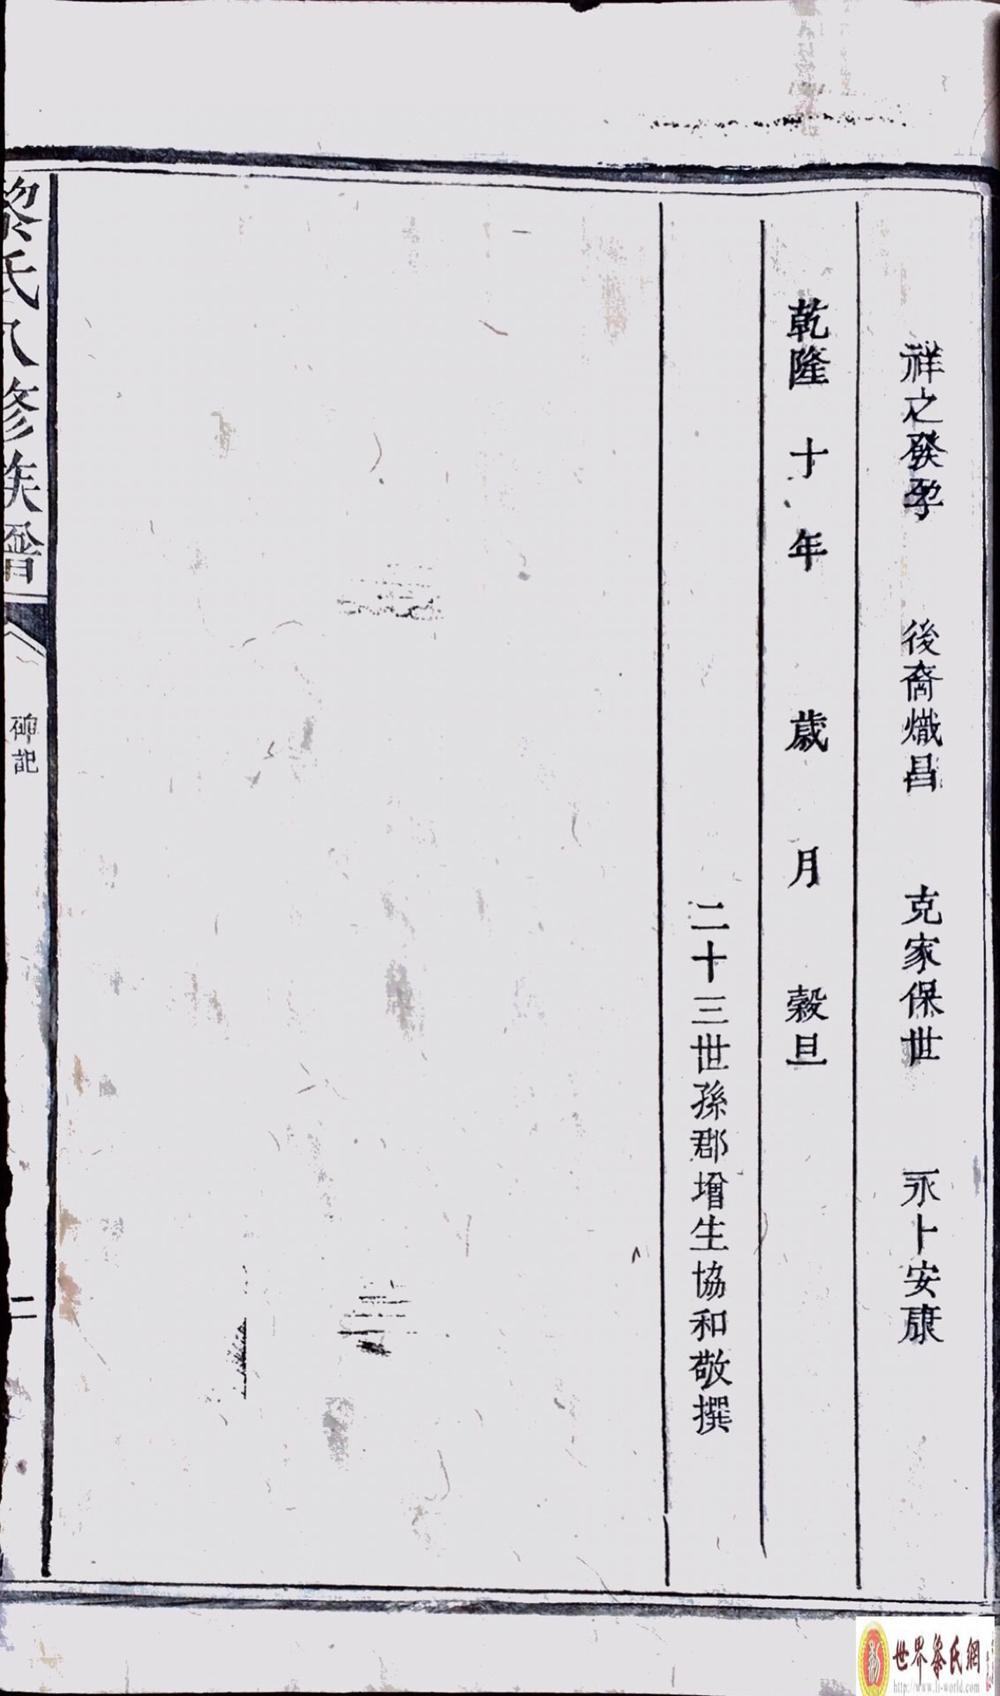 祥之發孕　後裔熾昌　克家保世　永卜安康
乾隆十年　歲　月　穀旦
二十三世孫郡增生協和敬撰
黎氏八修族譜
碑記
二
世界黎氏網
http://www.li-world.com